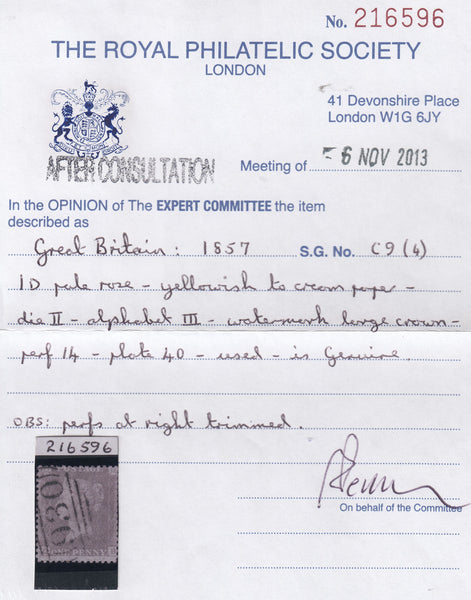 No. 216596
THE ROYAL PHILATELIC SOCIETY
LONDON
41 Devonshire Place
London W1G 6JY
AFTER CONSULTATION
Meeting of - 6 NOV 2013
In the OPINION of The EXPERT COMMITTEE the item
described as
Great Britain: 1857 S.G. No. C9(4)
1D pale rose - yellowish to cream paper -
die II - alphabet III - watermark large crown -
perf 14 - plate 40 - used - is Genuine.
OBS: perfs at right trimmed.
216596
930
ONE PENNY
On behalf of the Committee